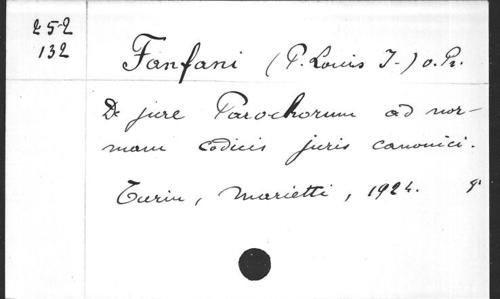 252
132
Fanfani (P. Louis J-) o. Pr.
De jure Parochorum ad nor-
mam codicis juris canonici.
Turin, Marietti, 1924.